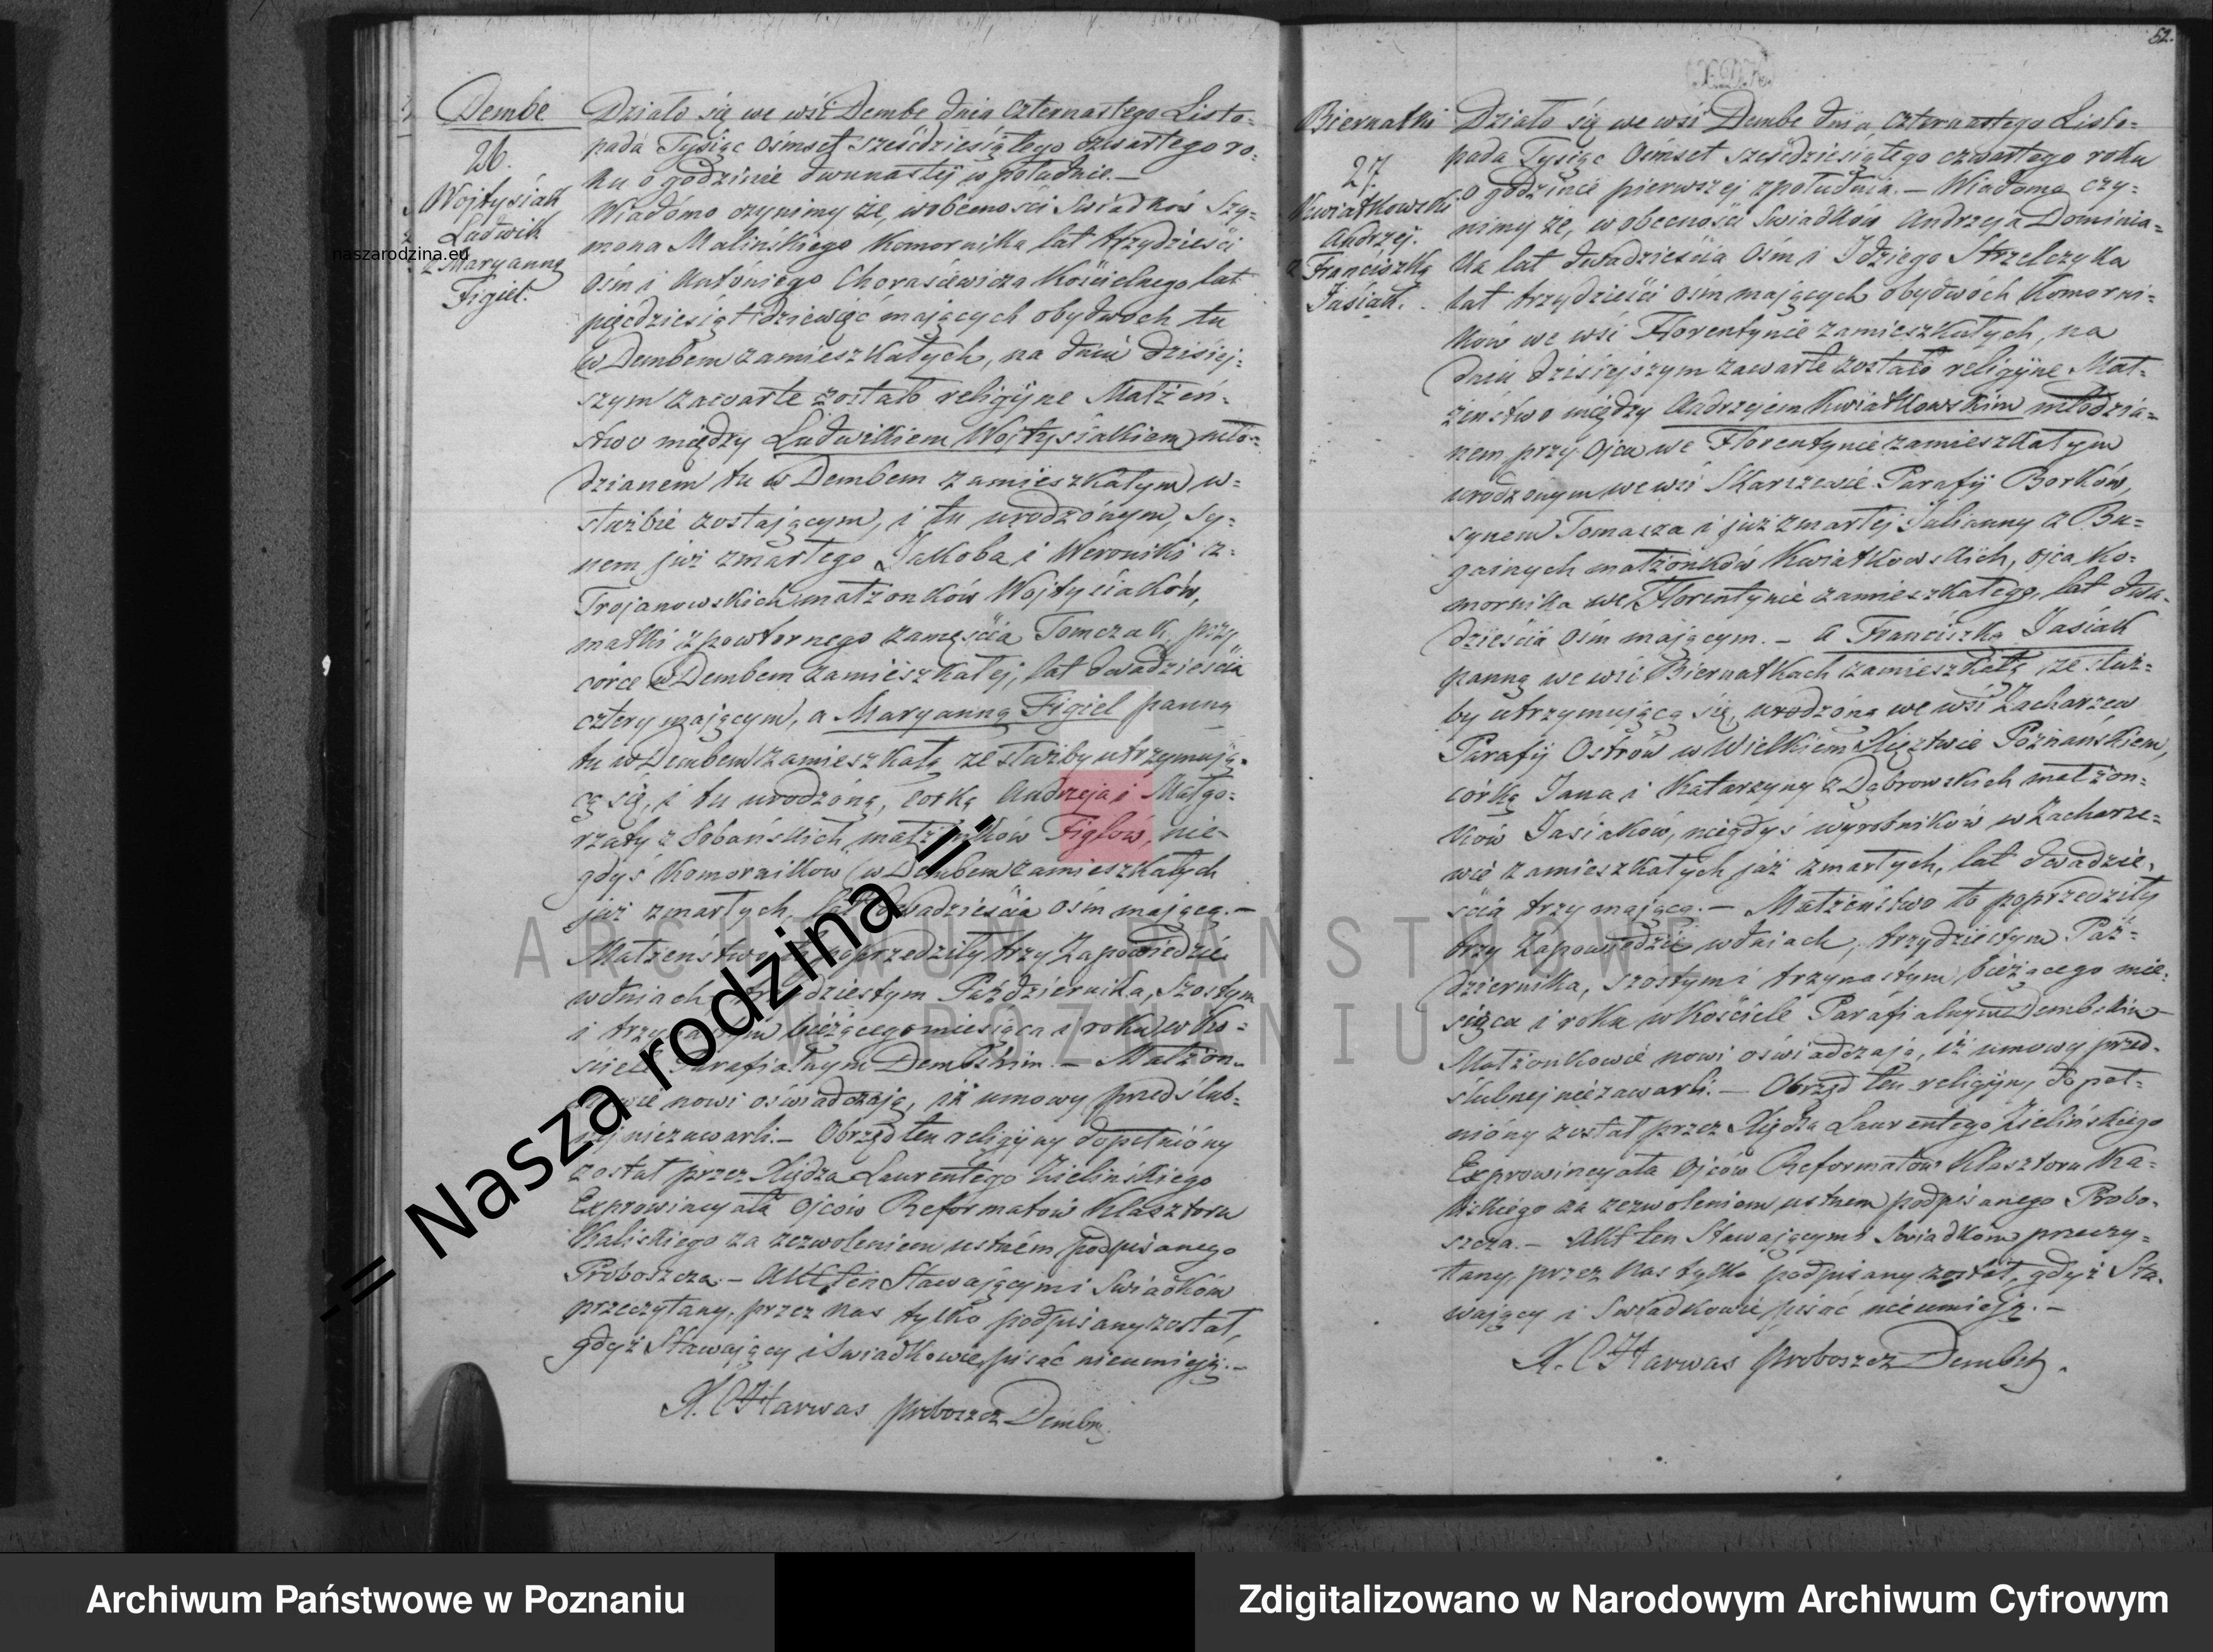 Dembe
26.
Wojtysiak
Ludwik
z Maryanną
Figiel.
Działo się we wsi Dembe dnia czternastego Listo=
pada Tysiąc Ośmset sześćdziesiątego czwartego ro=
ku o godzinie dwunastej w południe.—
Wiadomo czynimy że, w obecności Świadków Szy=
mona Malińskiego Komornika lat trzydzieści
ośm i Antoniego Chorasiewicza Kościelnego lat
pięćdziesiąt dziewięć mających obydwóch tu
w Dembem zamieszkałych, na dniu dzisiej=
szym zawarte zostało religijne Małżeń=
stwo między Ludwikiem Wojtysiakiem mło=
dzianem tu w Dembem zamieszkałym w=
służbie zostającym, i tu urodzonym, sy=
nem już zmarłego Jakoba i Weroniki z=
Trojanowskich małżonków Wojtysiaków,
matki z powtórnego zamęścia Tomczak przy
córce w Dembem zamieszkałej, lat dwadzieścia
cztery mającym, a Maryanną Figiel panną
tu w Dembem zamieszkałą ze służby utrzymują=
cą się, i tu urodzoną, córką Andrzeja i Małgo=
rzaty z Sobańskich małżonków Figlów, nie=
gdyś Komorników w Dembem zamieszkałych
już zmarłych, lat dwadzieścia ośm mającą.—
Małżeństwo to poprzedziły trzy Zapowiedzie
w dniach trzydziestym Października, szóstym
i trzynastym bieżącego miesiąca i roku w Ko=
ściele Parafialnym Dembskim.— Małżon=
kowie nowi oświadczają, iż umowy przedślub=
nej niezawarli.— Obrzęd ten religijny dopełniony
został przez Xiędza Laurentego Zielińskiego
Exprowincyała Ojców Reformatów Klasztoru
Kaliskiego za zezwoleniem ustnem podpisanego
Proboszcza.— Akt ten Stawającymi Świadkom
przeczytany, przez nas tylko podpisany został,
gdyż Stawający i Świadkowie pisać nieumieją.—
X. C Harwas proboszcz Dembs.
52.
Biernatki
27.
Kwiatkowski
Andrzej.
z Franciszką
Jasiak.
Działo się we wsi Dembe dnia czternastego Listo=
pada Tysiąc Ośmset sześćdziesiątego czwartego roku
o godzinie pierwszej z południa.— Wiadomo czy=
nimy że, w obecności Świadków Andrzeja Dominia=
ka lat dwadzieścia ośm i Idziego Strzelczyka
lat trzydzieści ośm mających obydwóch Komorni=
ków we wsi Florentynie zamieszkałych, na
dniu dzisiejszym zawarte zostało religijne Mał=
żeństwo między Andrzejem Kwiatkowskim młodzia=
nem przy ojcu we Florentynie zamieszkałym
urodzonym we wsi Skarszewie Parafii Borków,
synem Tomasza i już zmarłej Julianny z Bu=
gajnych małżonków Kwiatkowskich, ojca Ko=
mornika we Florentynie zamieszkałego, lat dwa=
dzieścia ośm mającym.— a Franciszką Jasiak
panną we wsi Biernatkach zamieszkałą ze służ=
by utrzymującą się, urodzoną we wsi Zacharzew
Parafii Ostrów w Wielkiem Xięztwie Poznańskiem,
córką Jana i Katarzyny z Dąbrowskich małżon=
ków Jasiaków, niegdyś wyrobników w Zacharze=
wie zamieszkałych już zmarłych, lat dwadzie=
ścia trzy mającą.— Małżeństwo to poprzedziły
trzy Zapowiedzie w dniach, trzydziestym Paź=
dziernika, szóstym i trzynastym bieżącego mie=
siąca i roku w Kościele Parafialnym Dembskim—
Małżonkowie nowi oświadczają, iż umowy przed=
ślubnej niezawarli.— Obrzęd ten religijny dopeł=
niony został przez Xiędza Laurentego Zielińskiego
Exprowincyała Ojców Reformatów Klasztoru Ka=
liskiego za zezwoleniem ustnem podpisanego Probo=
szcza.— Akt ten Stawającymi Świadkom przeczy=
tany, przez nas tylko podpisany został, gdyż Sta=
wający i Świadkowie pisać nieumieją.—
X. C Harwas proboszcz Dembs.
naszarodzina.eu
-= Nasza rodzina =-
ARCHIWUM PAŃSTWOWE
W POZNANIU
Archiwum Państwowe w Poznaniu
Zdigitalizowano w Narodowym Archiwum Cyfrowym